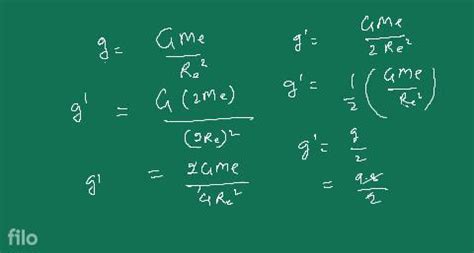 g = GMe / Re²
g' = G(2Me) / (2Re)²
g' = 2GMe / 4Re²
g' = GMe / 2Re²
g' = 1/2 (GMe / Re²)
g' = g / 2
= 9.8 / 2
filo